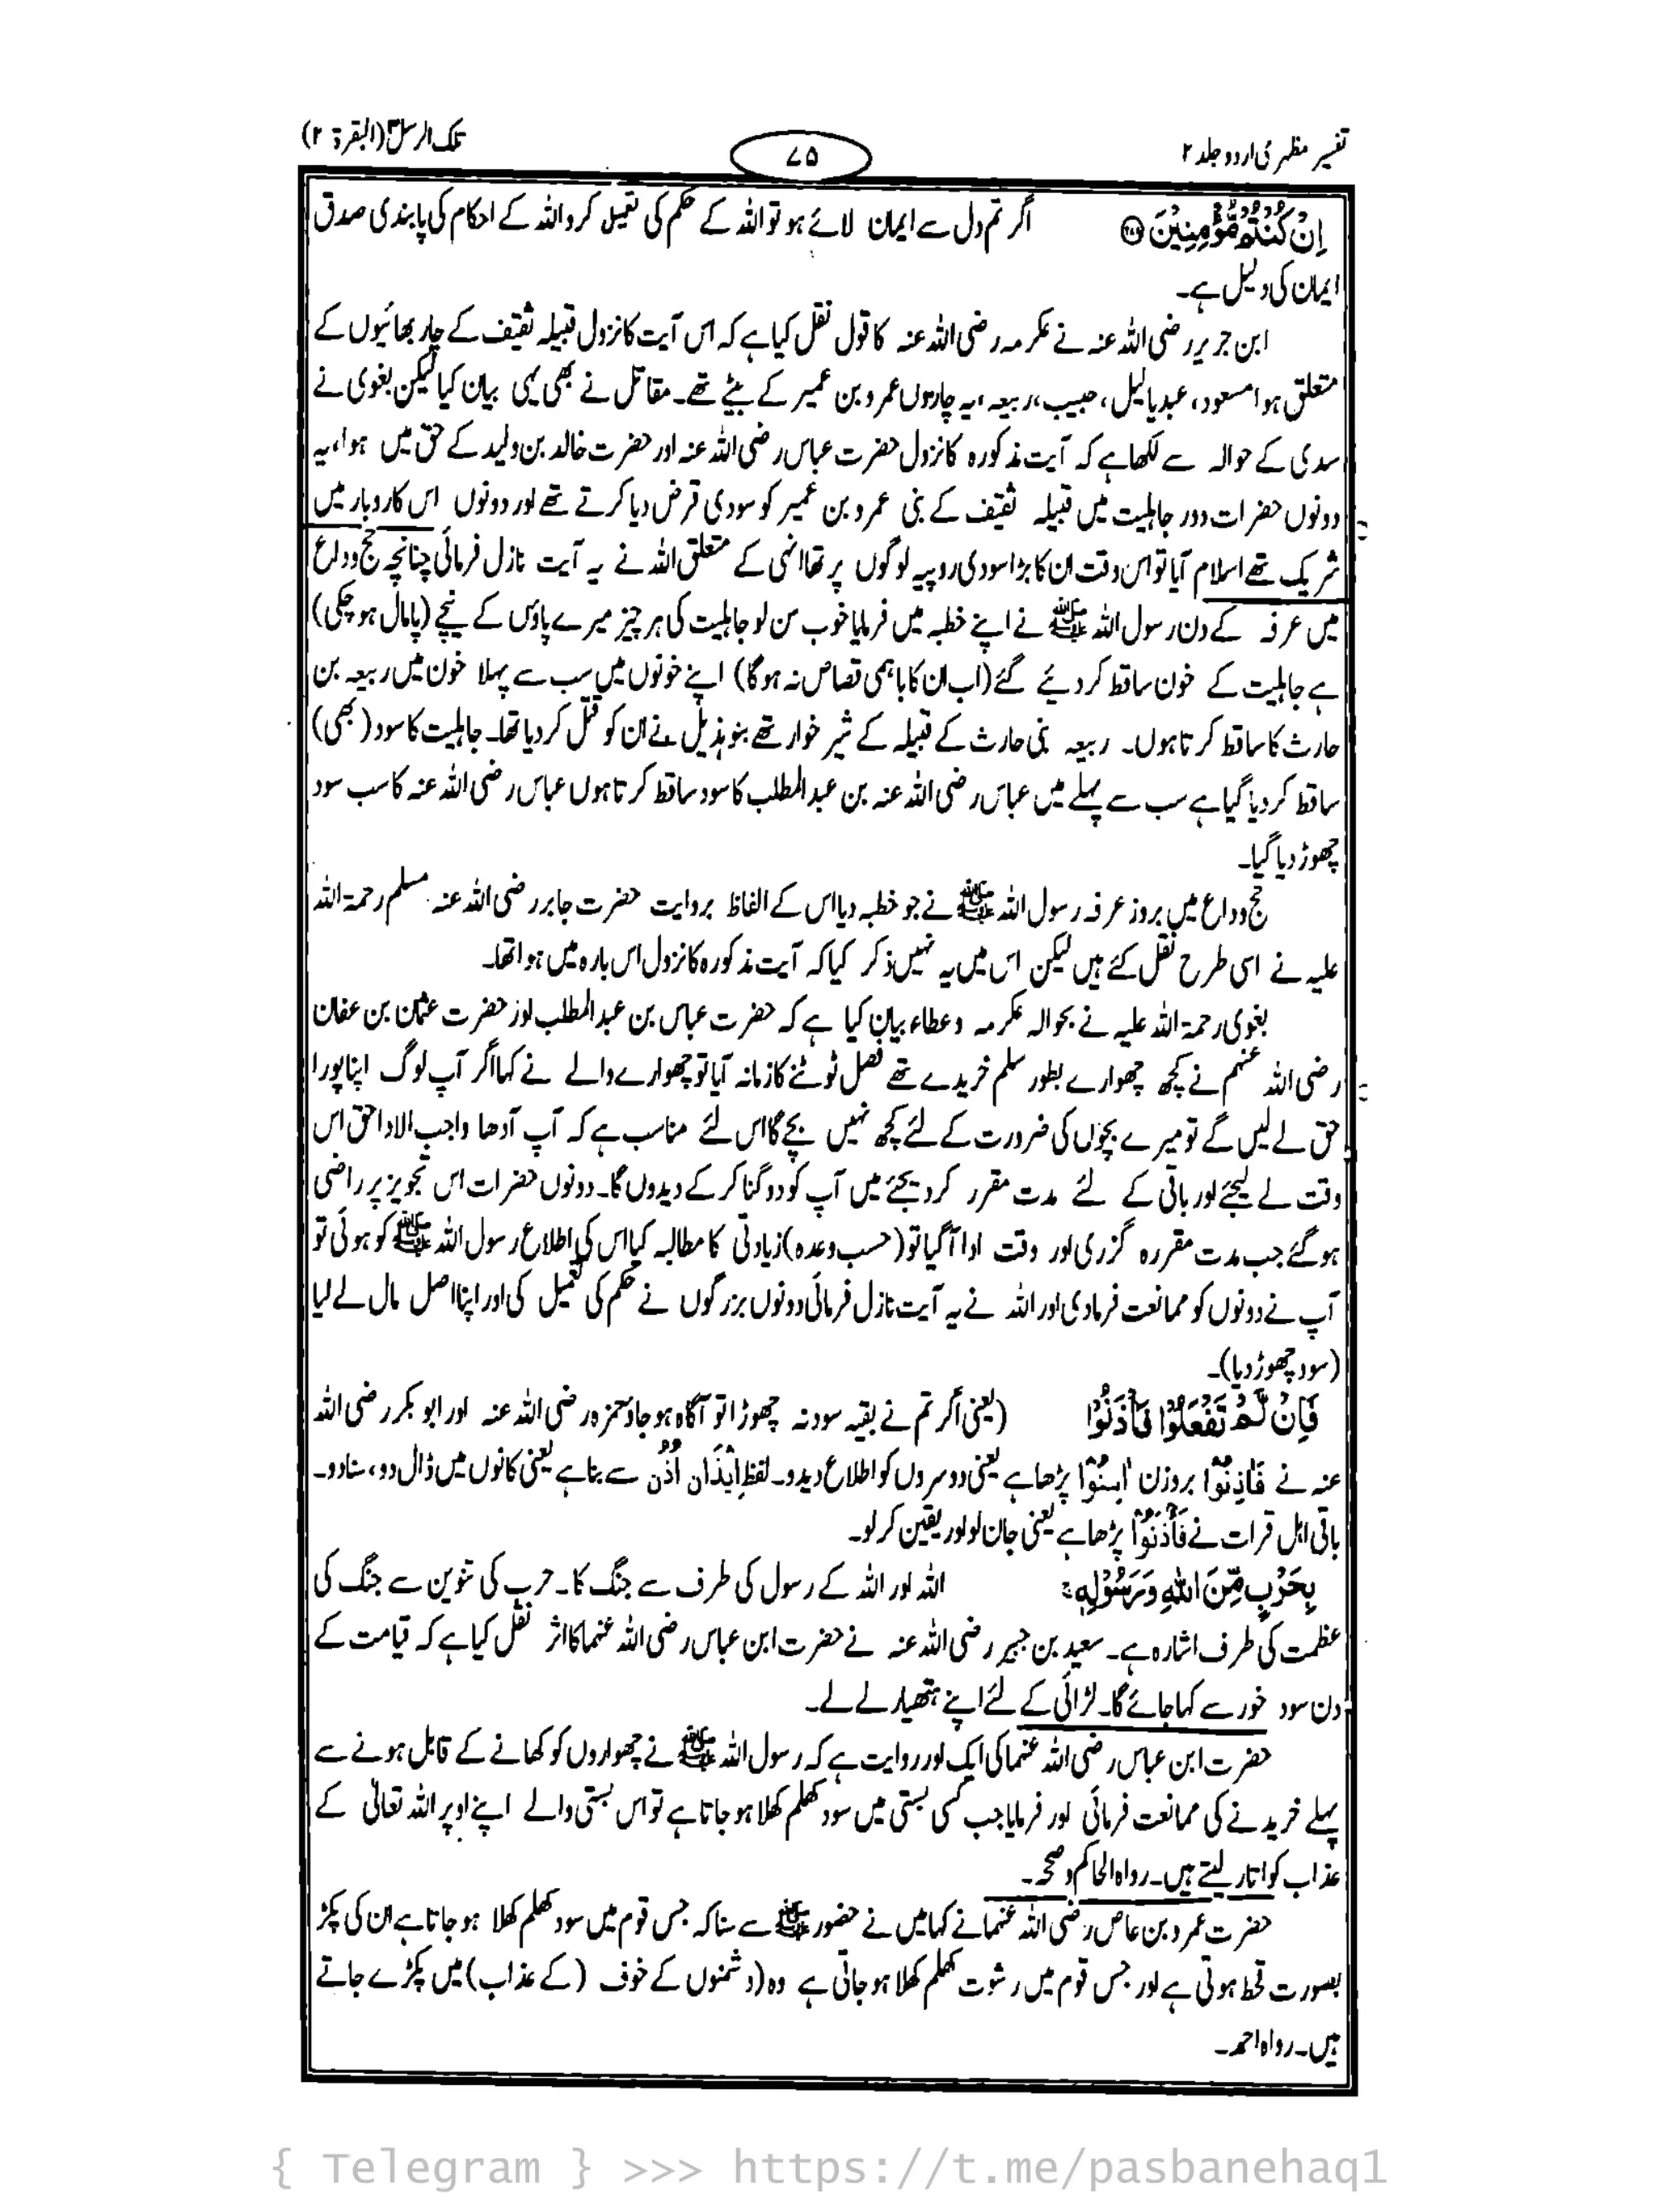 تفسیر مظہری اردو جلد ۲
۷۵
تلک الرسل ۳ (البقرۃ ۲)
اِنْ كُنْتُمْ مُّؤْمِنِيْنَ ۲۷۸ اگر تم دل سے ایمان لائے ہو تو اللہ کے حکم کی تعمیل کرو اللہ کے احکام کی پابندی صدق
ایمان کی دلیل ہے۔
ابن جریر رضی اللہ عنہ نے عکرمہ رضی اللہ عنہ کا قول نقل کیا ہے کہ اس آیت کا نزول قبیلہ ثقیف کے چار بھائیوں کے
متعلق ہوا مسعود، عبدیالیل، حبیب، ربیعہ، یہ چاروں عمرو بن عمیر کے بیٹے تھے۔ مقاتل نے بھی یہی بیان کیا لیکن بغوی نے
سدی کے حوالہ سے لکھا ہے کہ آیت مذکورہ کا نزول حضرت عباس رضی اللہ عنہ اور حضرت خالد بن ولید کے حق میں ہوا، یہ
دونوں حضرات دور جاہلیت میں قبیلہ ثقیف کے بنی عمرو بن عمیر کو سودی قرض دیا کرتے تھے اور دونوں اس کاروبار میں
شریک تھے اسلام آیا تو اس وقت ان کا بڑا سودی روپیہ لوگوں پر تھا انہی کے متعلق اللہ نے یہ آیت نازل فرمائی چنانچہ حج وداع
میں عرفہ کے دن رسول اللہ ﷺ نے اپنے خطبہ میں فرمایا خوب سن لو جاہلیت کی ہر چیز میرے پاؤں کے نیچے (پامال ہو چکی)
ہے جاہلیت کے خون ساقط کر دیئے گئے (اب ان کا باہمی قصاص نہ ہوگا) اپنے خونوں میں سب سے پہلا خون میں ربیعہ بن
حارث کا ساقط کرتا ہوں۔ ربیعہ بنی حارث کے قبیلہ کے شیر خوار تھے بنو ہذیل نے ان کو قتل کر دیا تھا۔ جاہلیت کا سود (بھی)
ساقط کر دیا گیا ہے سب سے پہلے میں عباس رضی اللہ عنہ بن عبدالمطلب کا سود ساقط کرتا ہوں عباس رضی اللہ عنہ کا سب سود
چھوڑ دیا گیا۔
حج وداع میں بروز عرفہ رسول اللہ ﷺ نے جو خطبہ دیا اس کے الفاظ بروایت حضرت جابر رضی اللہ عنہ مسلم رحمۃ اللہ
علیہ نے اسی طرح نقل کئے ہیں لیکن اس میں یہ نہیں ذکر کیا کہ آیت مذکورہ کا نزول اس بارہ میں ہوا تھا۔
بغوی رحمۃ اللہ علیہ نے بحوالہ عکرمہ و عطاء بیان کیا ہے کہ حضرت عباس بن عبدالمطلب اور حضرت عثمان بن عفان
رضی اللہ عنہم نے کچھ چھوارے بطور سلم خریدے تھے فصل ٹوٹنے کا زمانہ آیا تو چھوارے والے نے کہا اگر آپ لوگ اپنا پورا
حق لے لیں گے تو میرے بچوں کی ضرورت کے لئے کچھ نہیں بچے گا اس لئے مناسب ہے کہ آپ آدھا واجب الادا حق اس
وقت لے لیجئے اور باقی کے لئے مدت مقرر کر دیجئے میں آپ کو دو گنا کر کے دیدوں گا۔ دونوں حضرات اس تجویز پر راضی
ہو گئے جب مدت مقررہ گزری اور وقت ادا آ گیا تو (حسب وعدہ) زیادتی کا مطالبہ کیا اس کی اطلاع رسول اللہ ﷺ کو ہوئی تو
آپ نے دونوں کو ممانعت فرما دی اور اللہ نے یہ آیت نازل فرمائی دونوں بزرگوں نے حکم کی تعمیل کی اور اپنا اصل مال لے لیا
(سود چھوڑ دیا)۔
فَاِنْ لَّمْ تَفْعَلُوْا فَاْذَنُوْا (یعنی اگر تم نے بقیہ سود نہ چھوڑا تو آگاہ ہو جاؤ حمزہ رضی اللہ عنہ اور ابو بکر رضی اللہ
عنہ نے فَاٰذِنُوْا بروزن اٰمِنُوْا پڑھا ہے یعنی دوسروں کو اطلاع دیدو۔ لفظ اِیْذَان اُذُن سے بنا ہے یعنی کانوں میں ڈال دو، سنا دو۔
باقی اہل قرات نے فَأْذَنُوْا پڑھا ہے یعنی جان لو اور یقین کر لو۔
بِحَرْبٍ مِّنَ اللّٰهِ وَرَسُوْلِهٖ اللہ اور اللہ کے رسول کی طرف سے جنگ کا۔ حرب کی تنوین سے جنگ کی
عظمت کی طرف اشارہ ہے۔ سعید بن جبیر رضی اللہ عنہ نے حضرت ابن عباس رضی اللہ عنہما کا اثر نقل کیا ہے کہ قیامت کے
دن سود خور سے کہا جائے گا۔ لڑائی کے لئے اپنے ہتھیار لے لے۔
حضرت ابن عباس رضی اللہ عنہما کی ایک اور روایت ہے کہ رسول اللہ ﷺ نے چھواروں کو کھانے کے قابل ہونے سے
پہلے خریدنے کی ممانعت فرمائی اور فرمایا جب کسی بستی میں سود کھلم کھلا ہو جاتا ہے تو اس بستی والے اپنے اوپر اللہ تعالیٰ کے
عذاب کو اتار لیتے ہیں۔ رواہ الحاکم وصححہ۔
حضرت عمرو بن عاص رضی اللہ عنہما نے کہا میں نے حضور ﷺ سے سنا کہ جس قوم میں سود کھلم کھلا ہو جاتا ہے ان کی پکڑ
بصورت قحط ہوتی ہے اور جس قوم میں رشوت کھلم کھلا ہو جاتی ہے وہ (دشمنوں کے خوف (کے عذاب) میں پکڑے جاتے
ہیں۔ رواہ احمد۔
{ Telegram } >>> https://t.me/pasbanehaq1